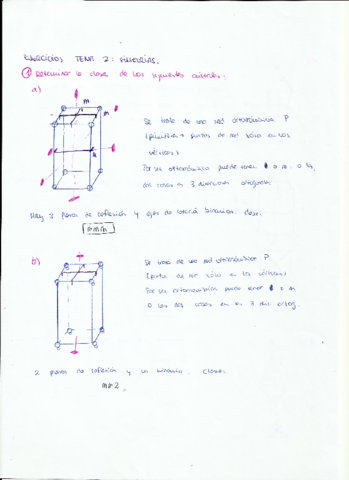 EJERCICIOS TEMA 2: SIMETRÍAS.
① Determinar la clase de los siguientes cristales:
a)
m
m
Se trata de una red ortorrómbica P
(primitiva → puntos de red sólo en los
vértices)
Por ser ortorrómbica puede tener o m o
dos cosas en 3 direcciones ortogonales
Hay 3 planos de reflexión y ejes de rotación binarios. Clase:
mmm
b)
Se trata de una red ortorrómbica P
(puntos de red sólo en los vértices)
Por ser ortorrómbica puede tener o m
o las dos cosas en 3 dir. ortog.
2 planos de reflexión y un binario. Clase:
mm2